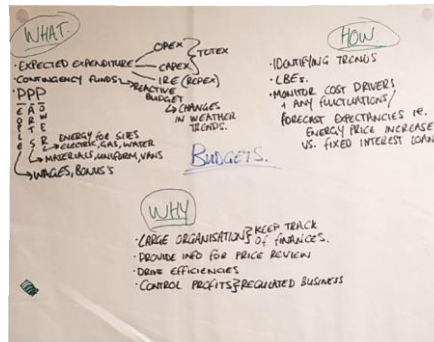 WHAT
OPEX
TOTEX
· EXPECTED EXPENDITURE
CAPEX
· CONTINGENCY FUNDS
IRE (REPEX)
REACTIVE
BUDGET
CHANGES
IN WEATHER
TRENDS.
· PPP
E A O
O R W
P T E
L S R
E
ENERGY FOR SITES
ELECTRIC, GAS, WATER
MATERIALS, UNIFORM, VANS
WAGES, BONUS'S
HOW
· IDENTIFYING TRENDS
· LBEs.
· MONITOR COST DRIVERS
+ ANY FLUCTUATIONS/
FORECAST EXPECTANCIES IE.
ENERGY PRICE INCREASE
VS. FIXED INTEREST LOAN
BUDGETS.
WHY
· LARGE ORGANISATION } KEEP TRACK
OF FINANCES.
· PROVIDE INFO FOR PRICE REVIEW
· DRIVE EFFICIENCIES
· CONTROL PROFITS } REGULATED BUSINESS